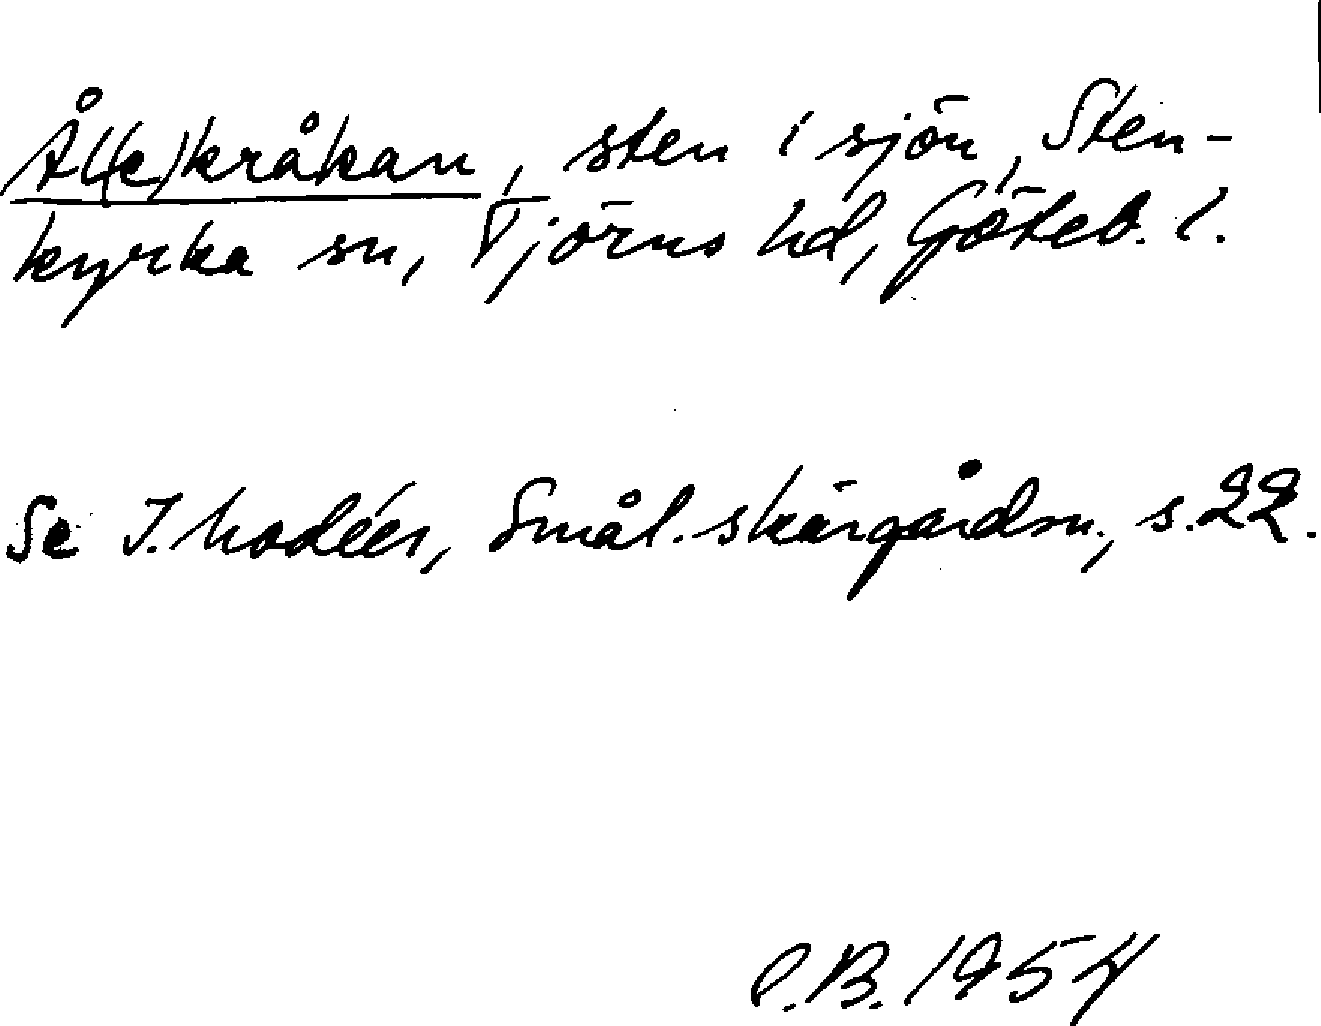 Ål(e)kråkan, sten i sjön, Sten-
kyrka sn, Tjörns hd, Göteb. l.
Se I. Modéer, Smål. skärgårdsn., s. 22.
P.B. 1954